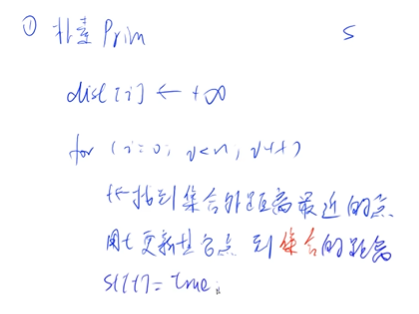 ① 朴素Prim S
dist[i] ← +∞
for (i=0; i<n; i++)
t←找到集合外距离最近的点
用t更新其它点到集合的距离
S[t]=true;